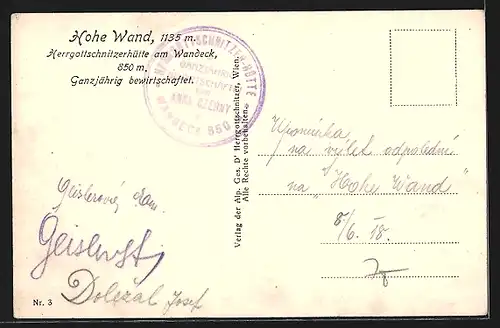 Hohe Wand, 1135 m.
Herrgottschnitzerhütte am Wandeck,
850 m,
Ganzjährig bewirtschaftet.
HERRGOTTSCHNITZER-HÜTTE
GANZJÄHRIG
WANDECK 850
Verlag der Alp. Ges. D' Herrgottschnitzer, Wien.
Alle Rechte vorbehalten.
Upomínka
na výlet odpolední
na "Hohe Wand"
8/6. 18.
Doležal Josef
Nr. 3